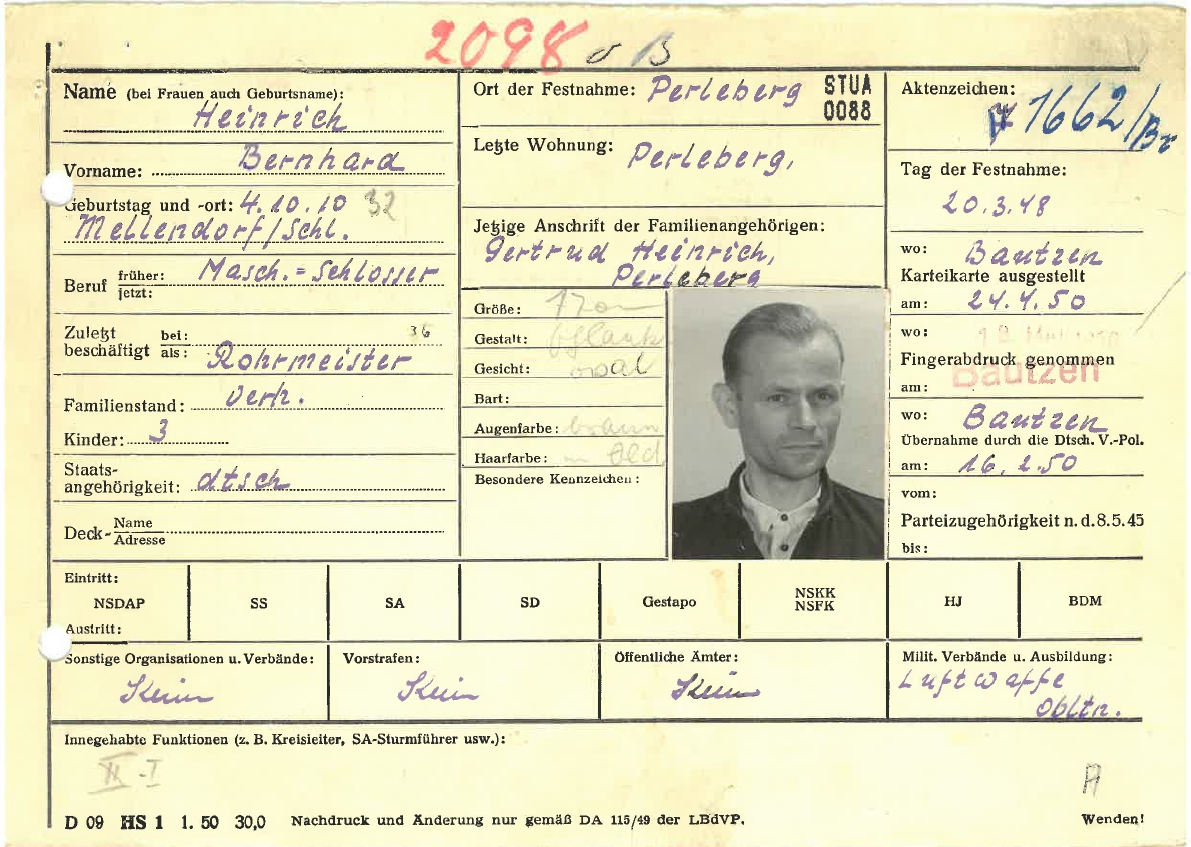 2098
Name (bei Frauen auch Geburtsname):
Heinrich
Vorname: Bernhard
Geburtstag und -ort: 4.10.10 32
Mellendorf/Schl.
Beruf früher: Masch.=Schlosser
jetzt:
Zuletzt beschäftigt bei: 36
als: Rohrmeister
Familienstand: verh.
Kinder: 3
Staats-
angehörigkeit: dtsch
Deck- Name
Adresse
Ort der Festnahme: Perleberg STUA
0088
Letzte Wohnung: Perleberg,
Jetzige Anschrift der Familienangehörigen:
Gertrud Heinrich,
Perleberg
Größe:
Gestalt:
Gesicht: oval
Bart:
Augenfarbe: braun
Haarfarbe:
Besondere Kennzeichen:
Aktenzeichen:
1662/Br
Tag der Festnahme:
20.3.48
wo: Bautzen
Karteikarte ausgestellt
am: 24.4.50
wo:
Fingerabdruck genommen
am: Bautzen
wo: Bautzen
Übernahme durch die Dtsch. V.-Pol.
am: 16.2.50
vom:
Parteizugehörigkeit n. d. 8.5.45
bis:
Eintritt:
NSDAP SS SA SD Gestapo NSKK NSFK HJ BDM
Austritt:
Sonstige Organisationen u. Verbände: Vorstrafen: Öffentliche Ämter: Milit. Verbände u. Ausbildung:
Kein Kein Kein Luftwaffe
Obltn.
Innegehabte Funktionen (z. B. Kreisleiter, SA-Sturmführer usw.):
II-I
A
D 09 HS 1 1. 50 30,0 Nachdruck und Änderung nur gemäß DA 115/49 der LBdVP. Wenden!